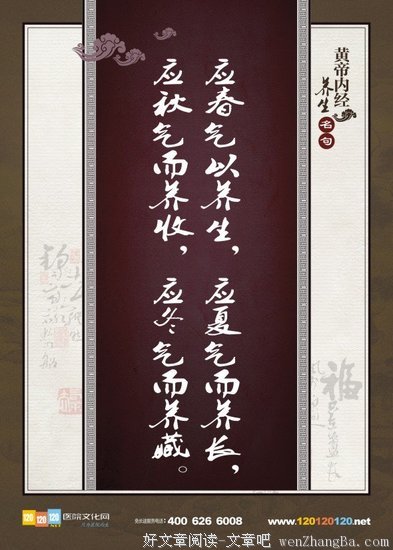 黄帝内经
养生
名句
应春气以养生，应夏气而养长，
应秋气而养收，应冬气而养藏。
福
120 120 120
.NET
医院文化网
免长途服务电话：400 626 6008
www.120120120.net
好文章阅读-文章吧 wenZhangBa.com